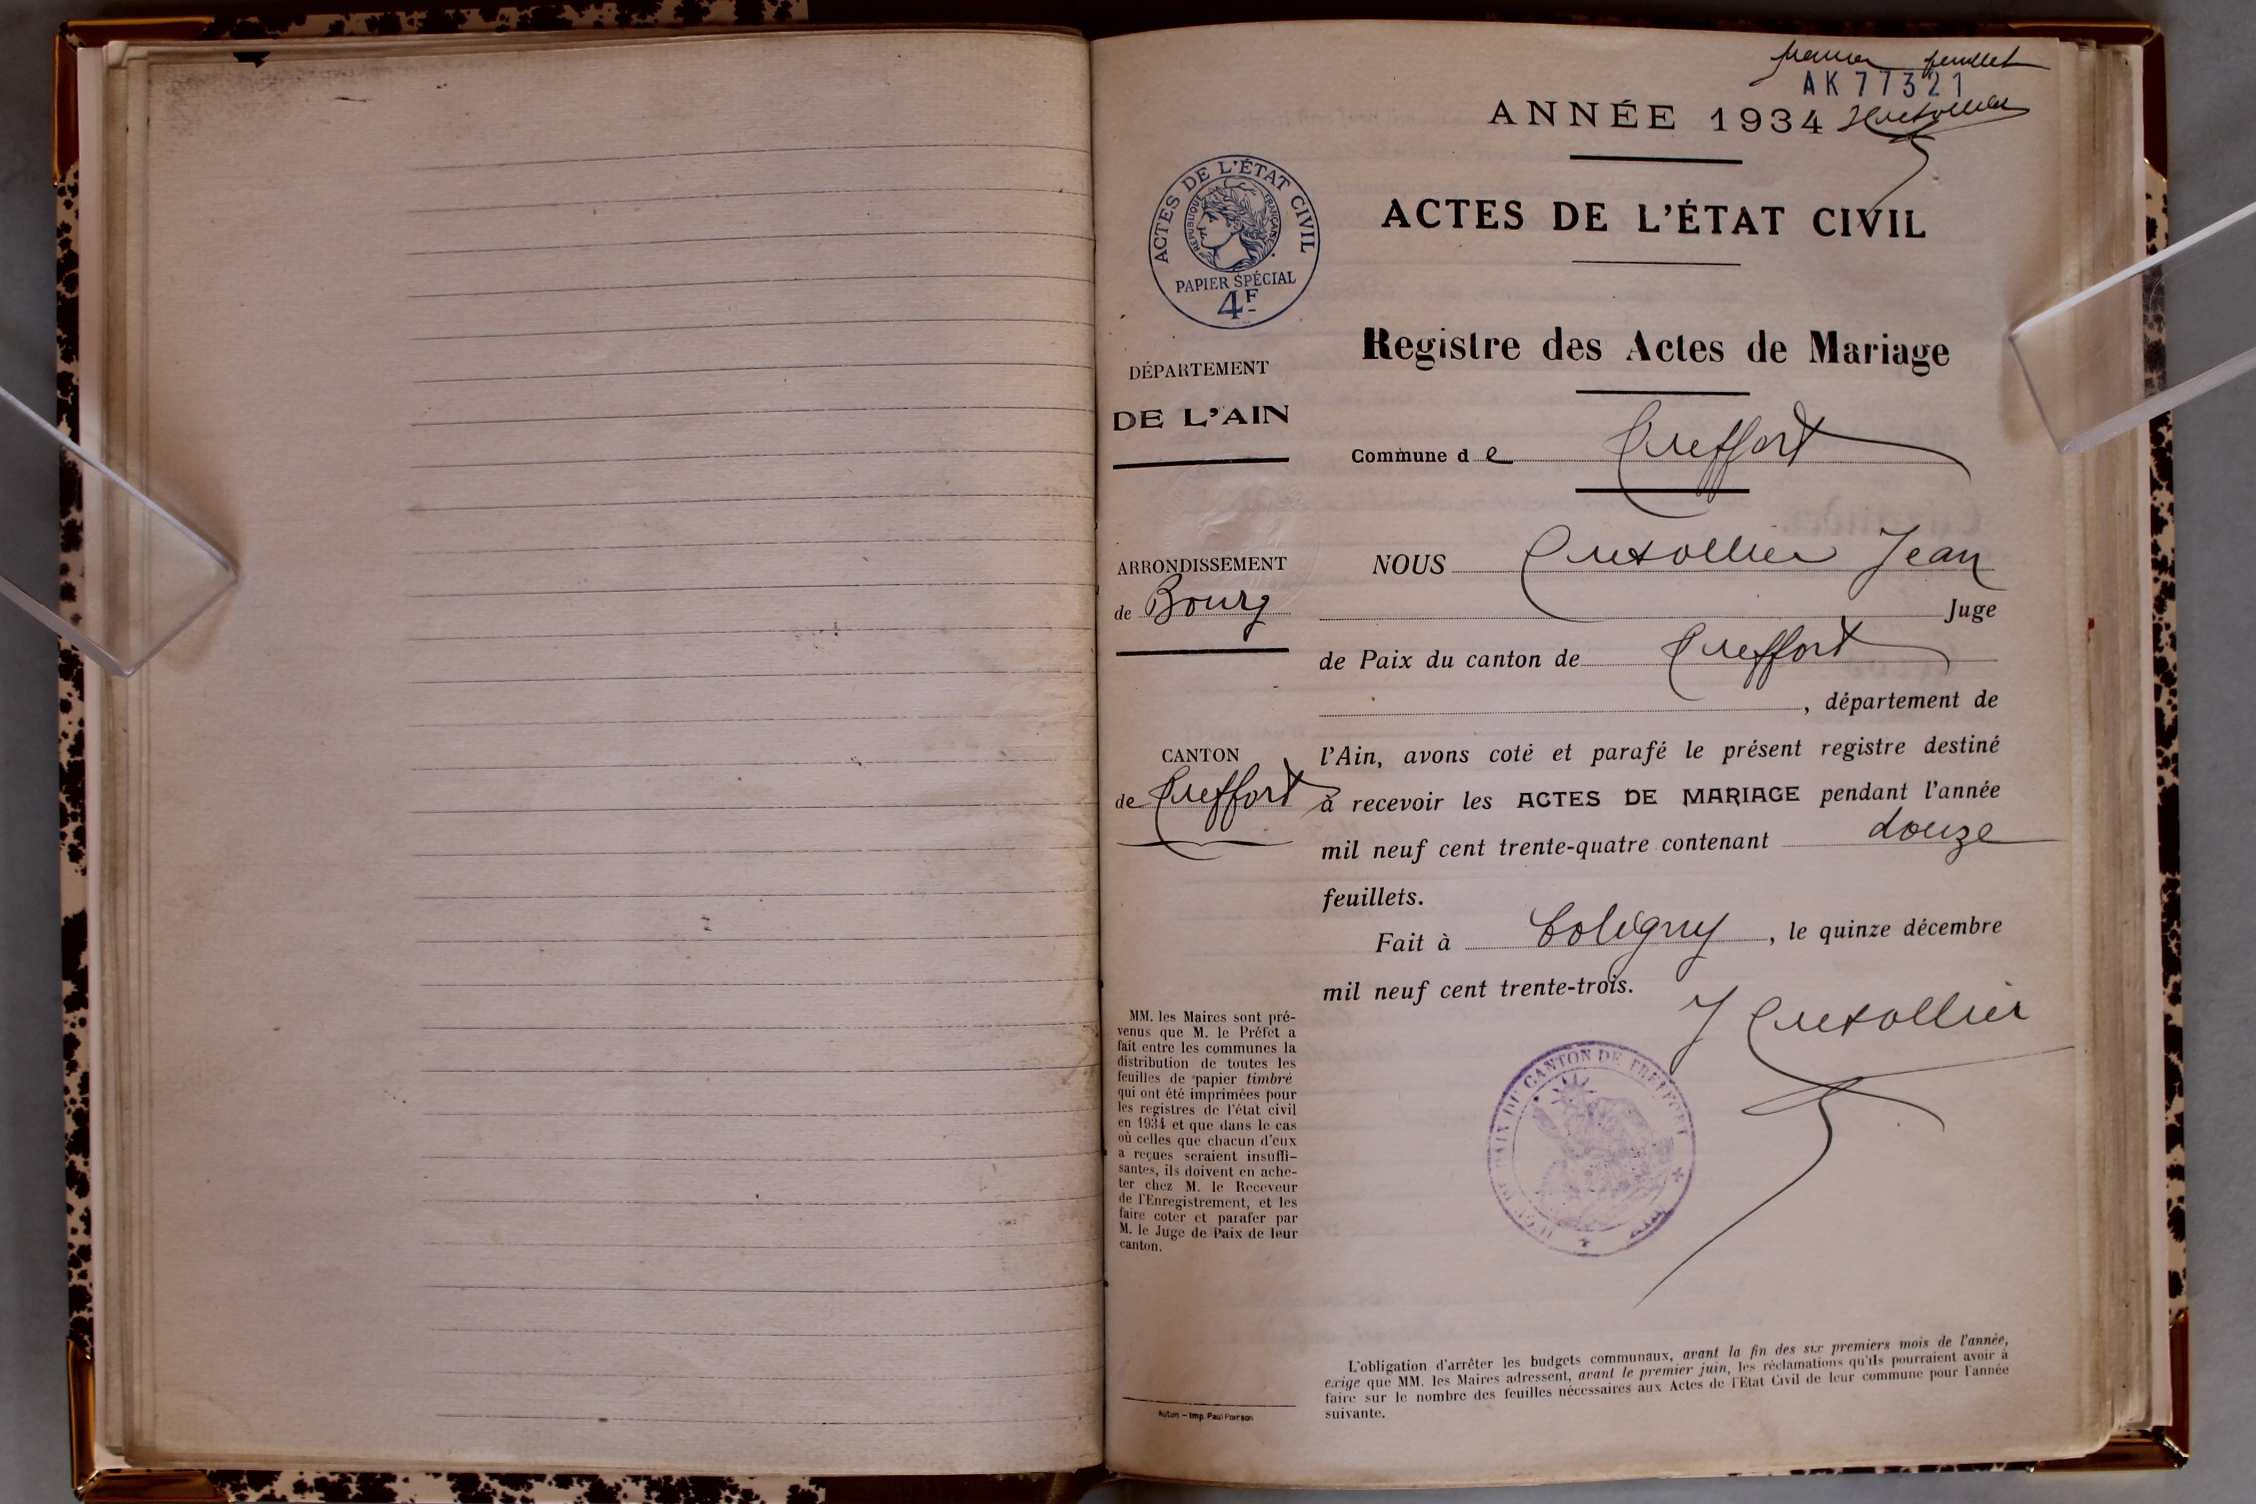 premier feuillet
AK77321
ANNÉE 1934
ACTES DE L'ÉTAT CIVIL
ACTES DE L'ÉTAT CIVIL
RÉPUBLIQUE FRANÇAISE
PAPIER SPÉCIAL
4F
Registre des Actes de Mariage
DÉPARTEMENT
DE L'AIN
Commune de Treffort
ARRONDISSEMENT
de Bourg
NOUS Cretollier Jean
Juge
de Paix du canton de Treffort
, département de
CANTON
de Treffort
l'Ain, avons coté et parafé le présent registre destiné
à recevoir les ACTES DE MARIAGE pendant l'année
mil neuf cent trente-quatre contenant douze
feuillets.
Fait à Coligny, le quinze décembre
mil neuf cent trente-trois.
J Cretollier
MM. les Maires sont pré-
venus que M. le Préfet a
fait entre les communes la
distribution de toutes les
feuilles de papier timbré
qui ont été imprimées pour
les registres de l'état civil
en 1934 et que dans le cas
où celles que chacun d'eux
a reçues seraient insuffi-
santes, ils doivent en ache-
ter chez M. le Receveur
de l'Enregistrement, et les
faire coter et parafer par
M. le Juge de Paix de leur
canton.
PAIX DU CANTON DE TREFFORT
AIN
L'obligation d'arrêter les budgets communaux, avant la fin des six premiers mois de l'année,
exige que MM. les Maires adressent, avant le premier juin, les réclamations qu'ils pourraient avoir à
faire sur le nombre des feuilles nécessaires aux Actes de l'Etat Civil de leur commune pour l'année
suivante.
Autun — Imp. Paul Poirson